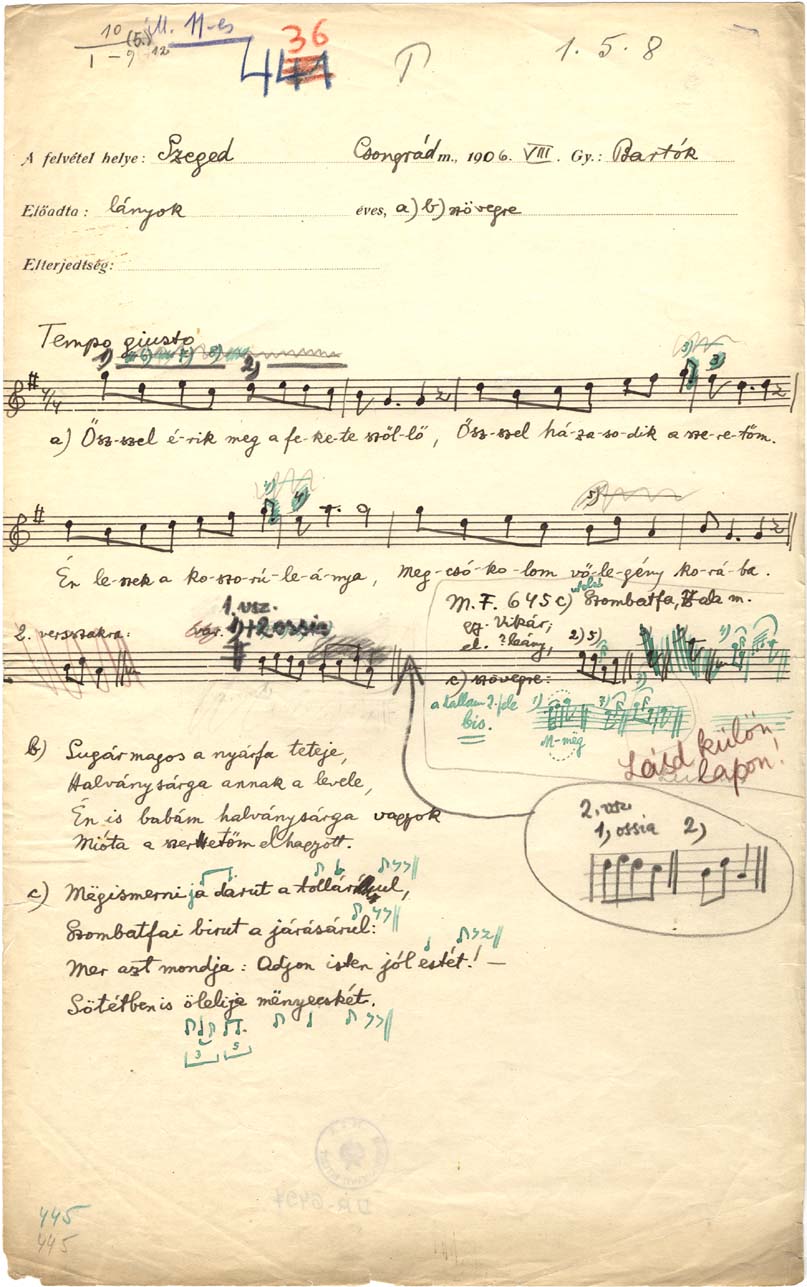 10
1-9
(5.)
12
ill. 11-es
36
441
1. 5. 8
A felvétel helye: Szeged Csongrád m., 1906. VIII. Gy.: Bartók
Előadta: lányok éves, a) b) szövegre
Elterjedtség:
Tempo giusto
1) 2)
a) Ősz-szel é-rik meg a fe-ke-te szől-lő, Ősz-szel há-za-so-dik a sze-re-tőm.
Én le-szek a ko-szo-rú-le-á-nya, Meg-csó-ko-lom vő-le-gény ko-rá-ba.
2. versszakra: 1. vsz.
1)+2 ossia
M.F. 645c) Szombatfa, m.
gy. Vikár;
el. ? leány,
2) 5)
c) szövegre:
a dallam 2. fele
bis.
M-még
Lásd külön
lapon!
b) Sugár magos a nyárfa teteje,
Halványsárga annak a levele,
Én is babám halványsárga vagyok
Mióta a szeretőm elhagyott.
2. vsz.
1, ossia 2)
c) Mëgismerni já darut a tollárul,
Szombatfai birut a járásárul:
Mer azt mondja: Adjon isten jól estét! —
Sötétben is öleli je mënyecskét.
3 5
445
445